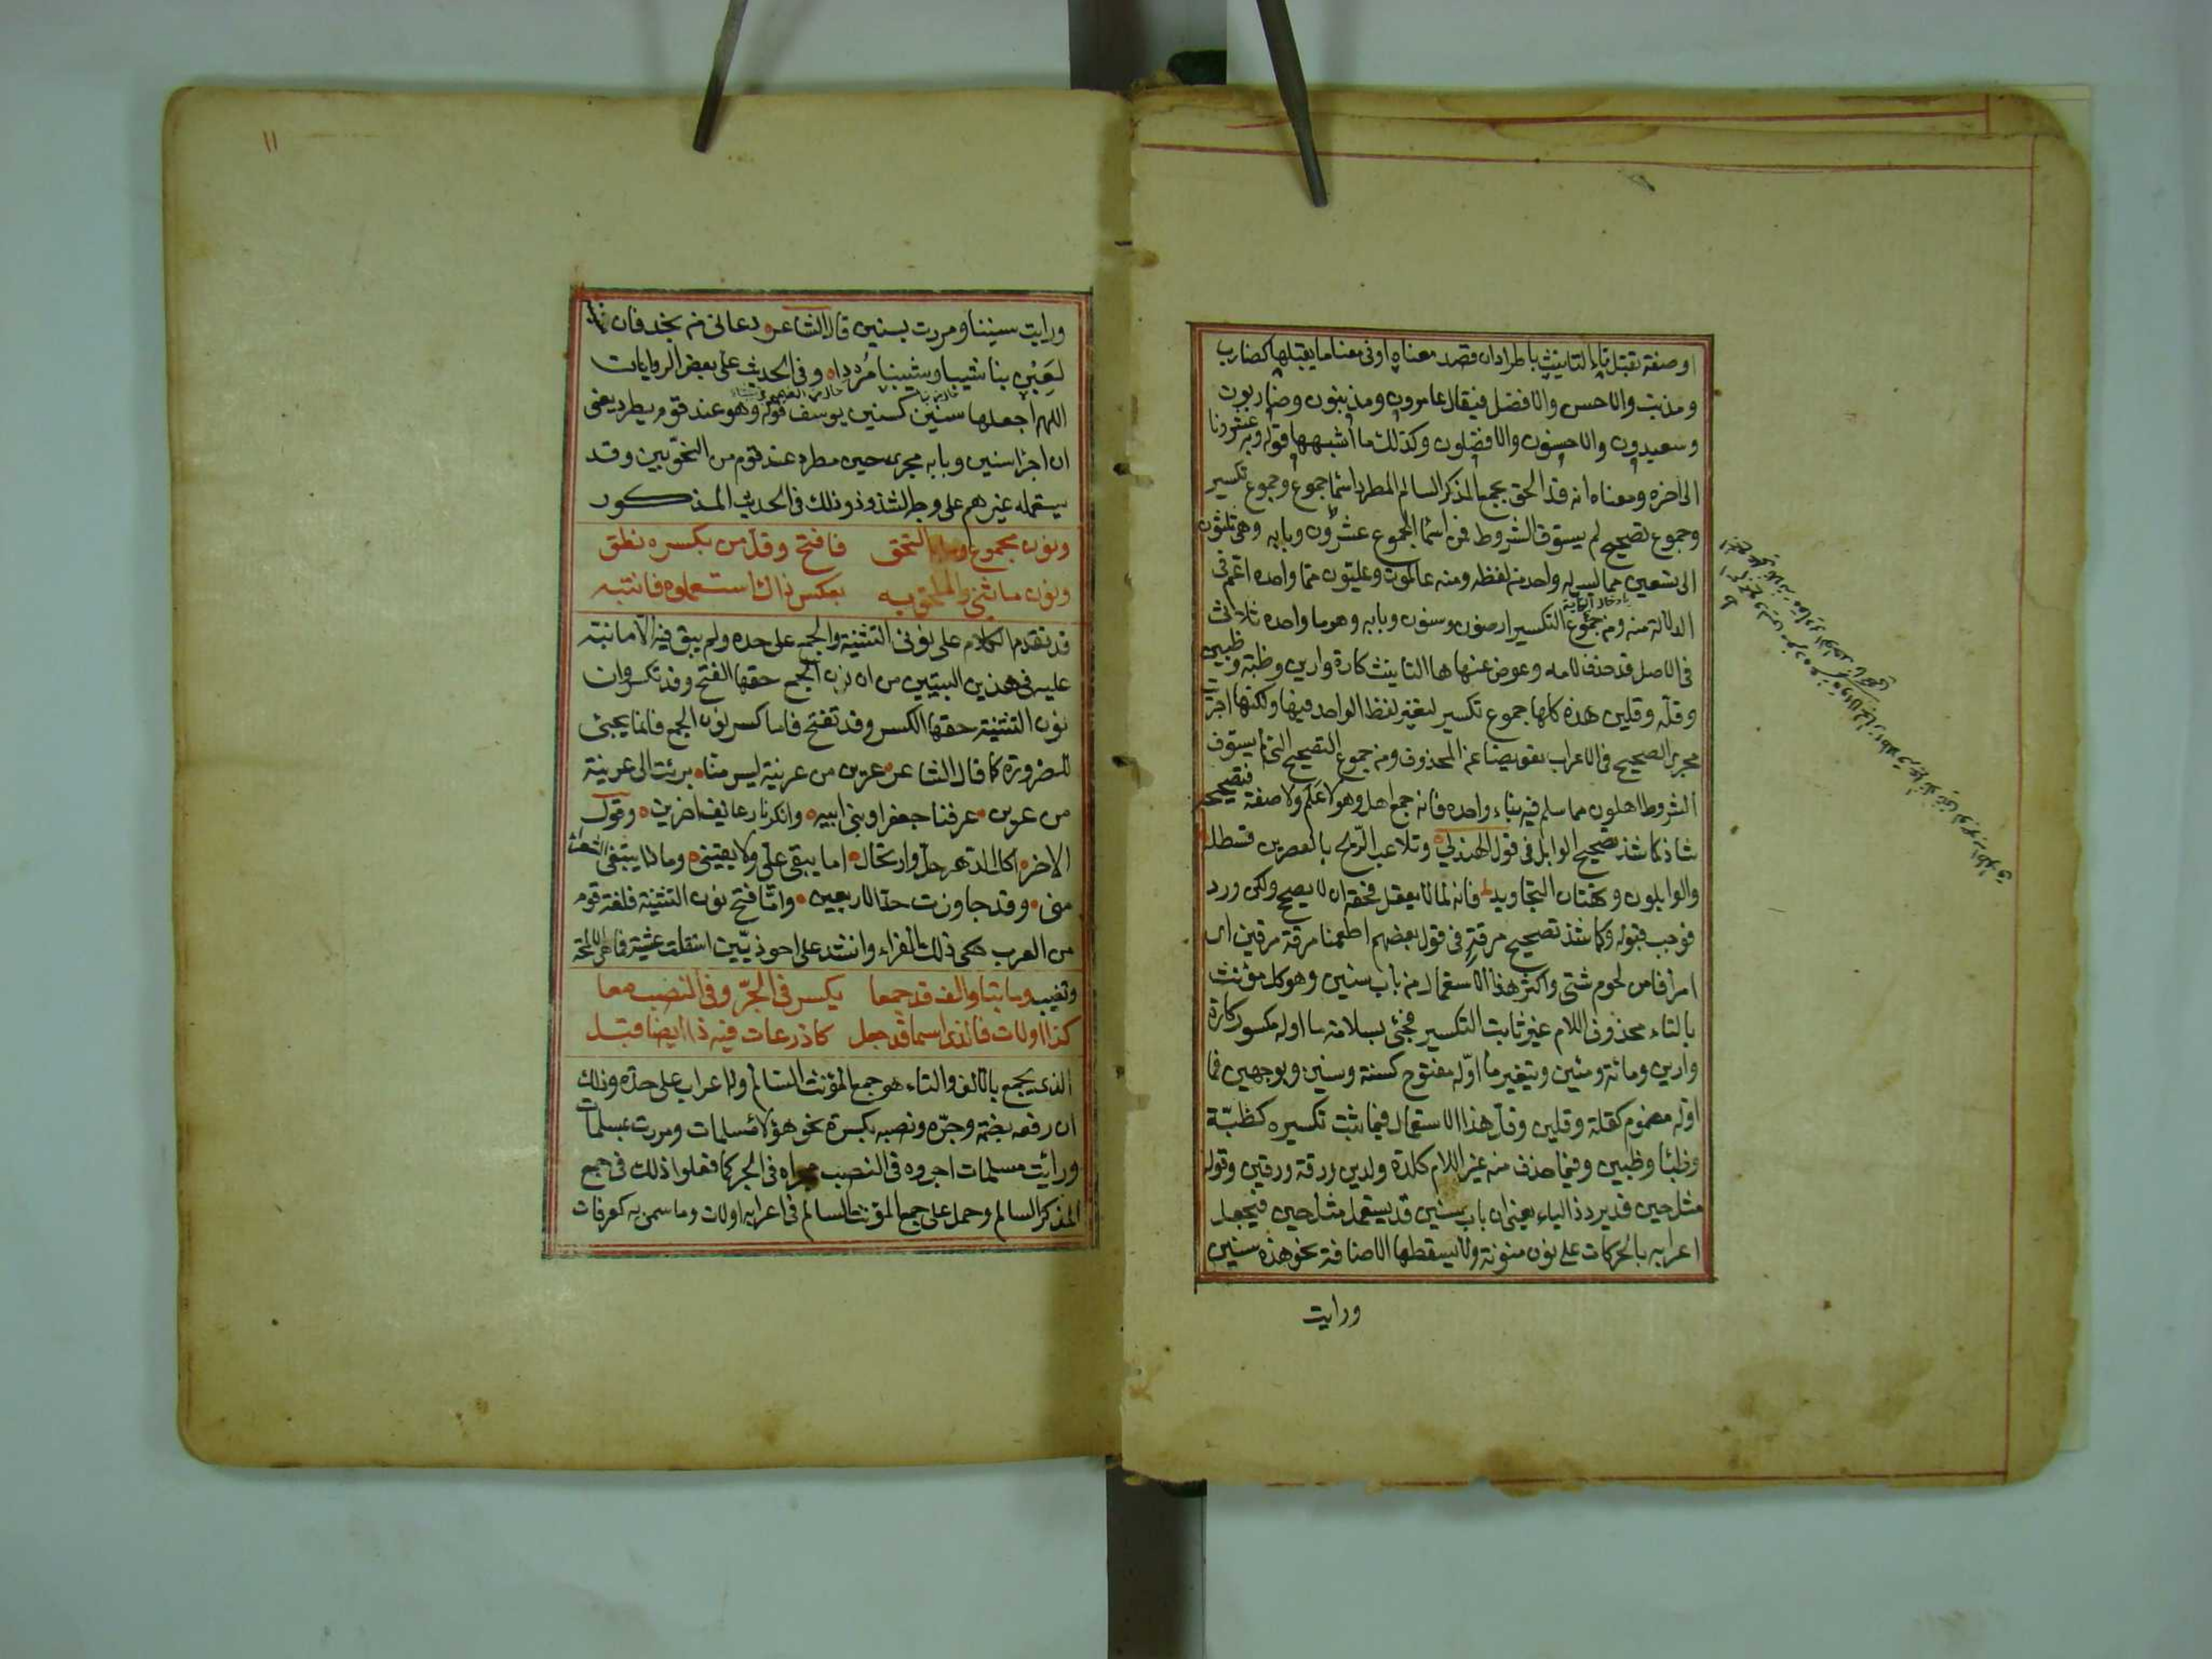 او صفة تقبل تاء التانيث باطراد ان قصد معناه او في معنا ما يقبلها كضارب
ومذنب والاحسن والافضل فيقال عامرون ومذنبون وضاربون
وسعيدون والاحسنون والافضلون وكذلك ما اشبهها قوله وبه عشرونا
الى اخره ومعناه انه قد الحق بجمع المذكر السالم المطرد اسما جموع وجموع تكسير
وجموع تصحيح لم يستوف الشروط فمن اسما الجموع عشرون وبابه وهي ثلثون
الى تسعين مما ليس له واحد من لفظه ومنه عالمون وعليون مما واحده اعم في
الدلالة منه ومن جموع التكسير ارضون وسنون وبابه وهو ما واحده ثلاثى
في الاصل قد حذف لامه وعوض عنها ها التانيث كارة وارين وظبة وظبين
وقلة وقلين هذه كلها جموع تكسير لتغير لفظ الواحد فيها ولكنها اجريت
مجرى الصحيح في الاعراب تعويضا عن المحذوف ومن جموع التصحيح التي لم يستوف
الشروط اهلون مما سلم فيه بناء واحده فانه جمع اهل وهو لا علم ولا صفة فتصحيحه
شاذ كما شذ تصحيح الوابل في قول الهذلي وتلاعب الريح بالعصرين قسطله
والوابلون وتهتان التجاويد فانه لما لا يعقل فحقه ان لا يصح ولكن ورد
فوجب قبوله وكما شذ تصحيح مرقة في قول بعضهم اطعمنا مرقة مرقين اى
امراقا من لحوم شتى واكثر هذا الاستعمال من باب سنين وهو كل مؤنث
بالتاء محذوف اللام غير ثابت التكسير فجئ بسلامة ما اوله مكسور كارة
وارين ومائة ومئين وبتغير ما اوله مفتوح كسنة وسنين وبوجهين فما
اوله مضموم كقلة وقلين وقل هذا الاستعمال فيما ثبت تكسيره كظبة
وظبا وظبين وفيما حذف منه غير اللام كلدة ولدين ورقة ورقين وقوله
مثل حين قد يرد ذا الباء يعني ان باب سنين قد يستعمل مثل حين فيجعل
اعرابه بالحركات على نون منونة ولا يسقطها الاضافة نحو هذه سنين
ورايت
١١
ورايت سنينا ومررت بسنين قال الشاعر دعاني من نجد فان
لعبن بنا شيبا وشيبننا مردا وفي الحديث على بعض الروايات
اللهم اجعلها سنين كسنين يوسف قوله وهو عند قوم يطرد يعني
ان اجرا سنين وبابه مجرى حين مطرد عند قوم من النحويين وقد
يستعمله غيرهم على وجه الشذوذ وذلك في الحديث المذكور
ونون مجموع وما به التحق فافتح وقل من بكسره نطق
ونون ما ثني والملحق به بعكس ذاك استعملوه فانتبه
قد تقدم الكلام على نوني التثنية والجمع على حده ولم يبق فيه الا ما نبه
عليه في هذين البيتين من ان نون الجمع حقها الفتح وقد تكسر وان
نون التثنية حقها الكسر وقد تفتح فاما كسر نون الجمع فانما يجيئ
للضرورة كما قال الشاعر عرين من عرينة ليس منا برئت الى عرينة
من عرين عرفنا جعفرا وبني ابيه وانكرنا زعانف اخرين وقول
الاخر اكل الدهر حل وارتحال اما يبقى علي ولا يقيني وماذا يبتغي الشعراء
مني وقد جاوزت حد الاربعين واما فتح نون التثنية فلغة قوم
من العرب حكى ذلك الفراء وانشد على احوذيين استقلت عشية فما هي الا لمحة
وتغيب وما بتا والف قد جمعا يكسر في الجر وفي النصب معا
كذا اولات والذي اسما قد جعل كاذرعات فيه ذا ايضا قبل
الذي يجمع بالالف والتاء هو جمع المؤنث السالم ولا اعراب على حده وذلك
ان رفعه بضمة وجره ونصبه بكسرة نحو هؤلاء مسلمات ومررت بمسلمات
ورائيت مسلمات اجروه في النصب مجراه في الجر كما فعلوا ذلك في جمع
المذكر السالم وحمل على جمع المؤنث السالم في اعرابه اولات وما سمي به كعرفات